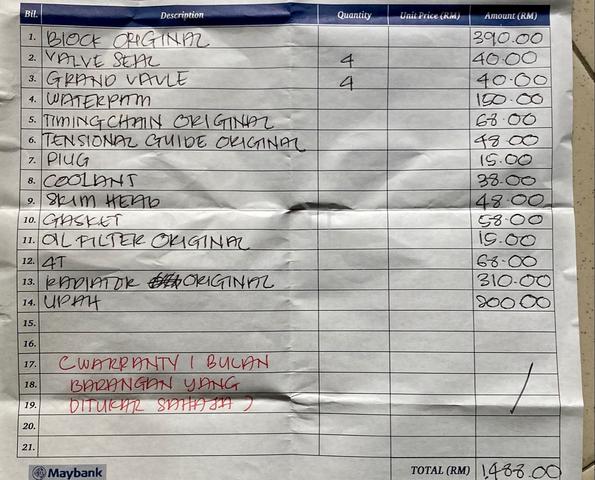 Bil. Description Quantity Unit Price (RM) Amount (RM)
1. BLOCK ORIGINAL 390.00
2. VALVE SEAL 4 40.00
3. GRAND VAVLE 4 40.00
4. WATERPAM 150.00
5. TIMING CHAIN ORIGINAL 68.00
6. TENSIONAL GUIDE ORIGINAL 48.00
7. PLUG 15.00
8. COOLANT 38.00
9. SKIM HEAD 48.00
10. GASKET 58.00
11. OIL FILTER ORIGINAL 15.00
12. 4T 68.00
13. RADIATOR ORIGINAL 310.00
14. UPAH 200.00
15.
16.
17. (WARRANTY 1 BULAN
18. BARANGAN YANG
19. DITUKAR SAHAJA)
20.
21.
Maybank TOTAL (RM) 1,488.00